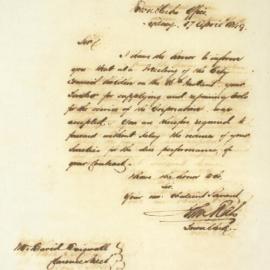 Town Clerks Office
Sydney 17 April 1849
Sir,
I have the honor to inform
you that at a Meeting of the City
Council holden on the instant, your
Tender for supplying and repairing tools
for the service of the Corporation was
accepted. You are therefore required to
forward without delay the names of your
Sureties in the due performance of
your Contract.
I have the honor &c
Sir
Your mo. Obedient Servant
Town Clerk
Mr David
Street